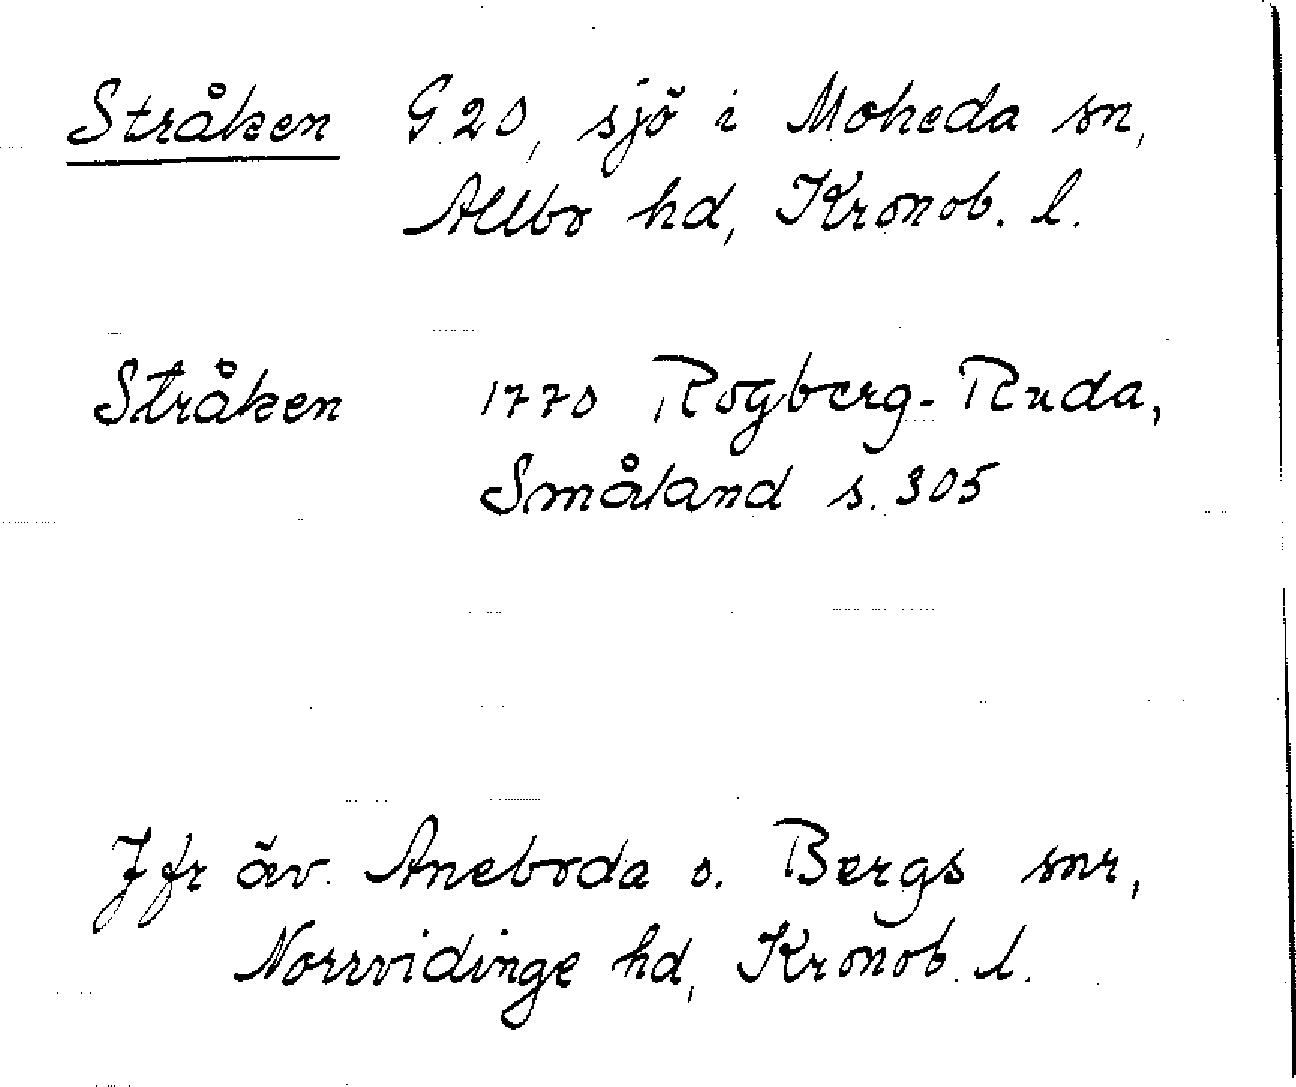 Stråken G20, sjö i Moheda sn,
Allbo hd, Kronob. l.
Stråken 1770 Rogberg-Ruda,
Småland s. 305
Jfr äv. Aneboda o. Bergs snr,
Norrvidinge hd, Kronob. l.